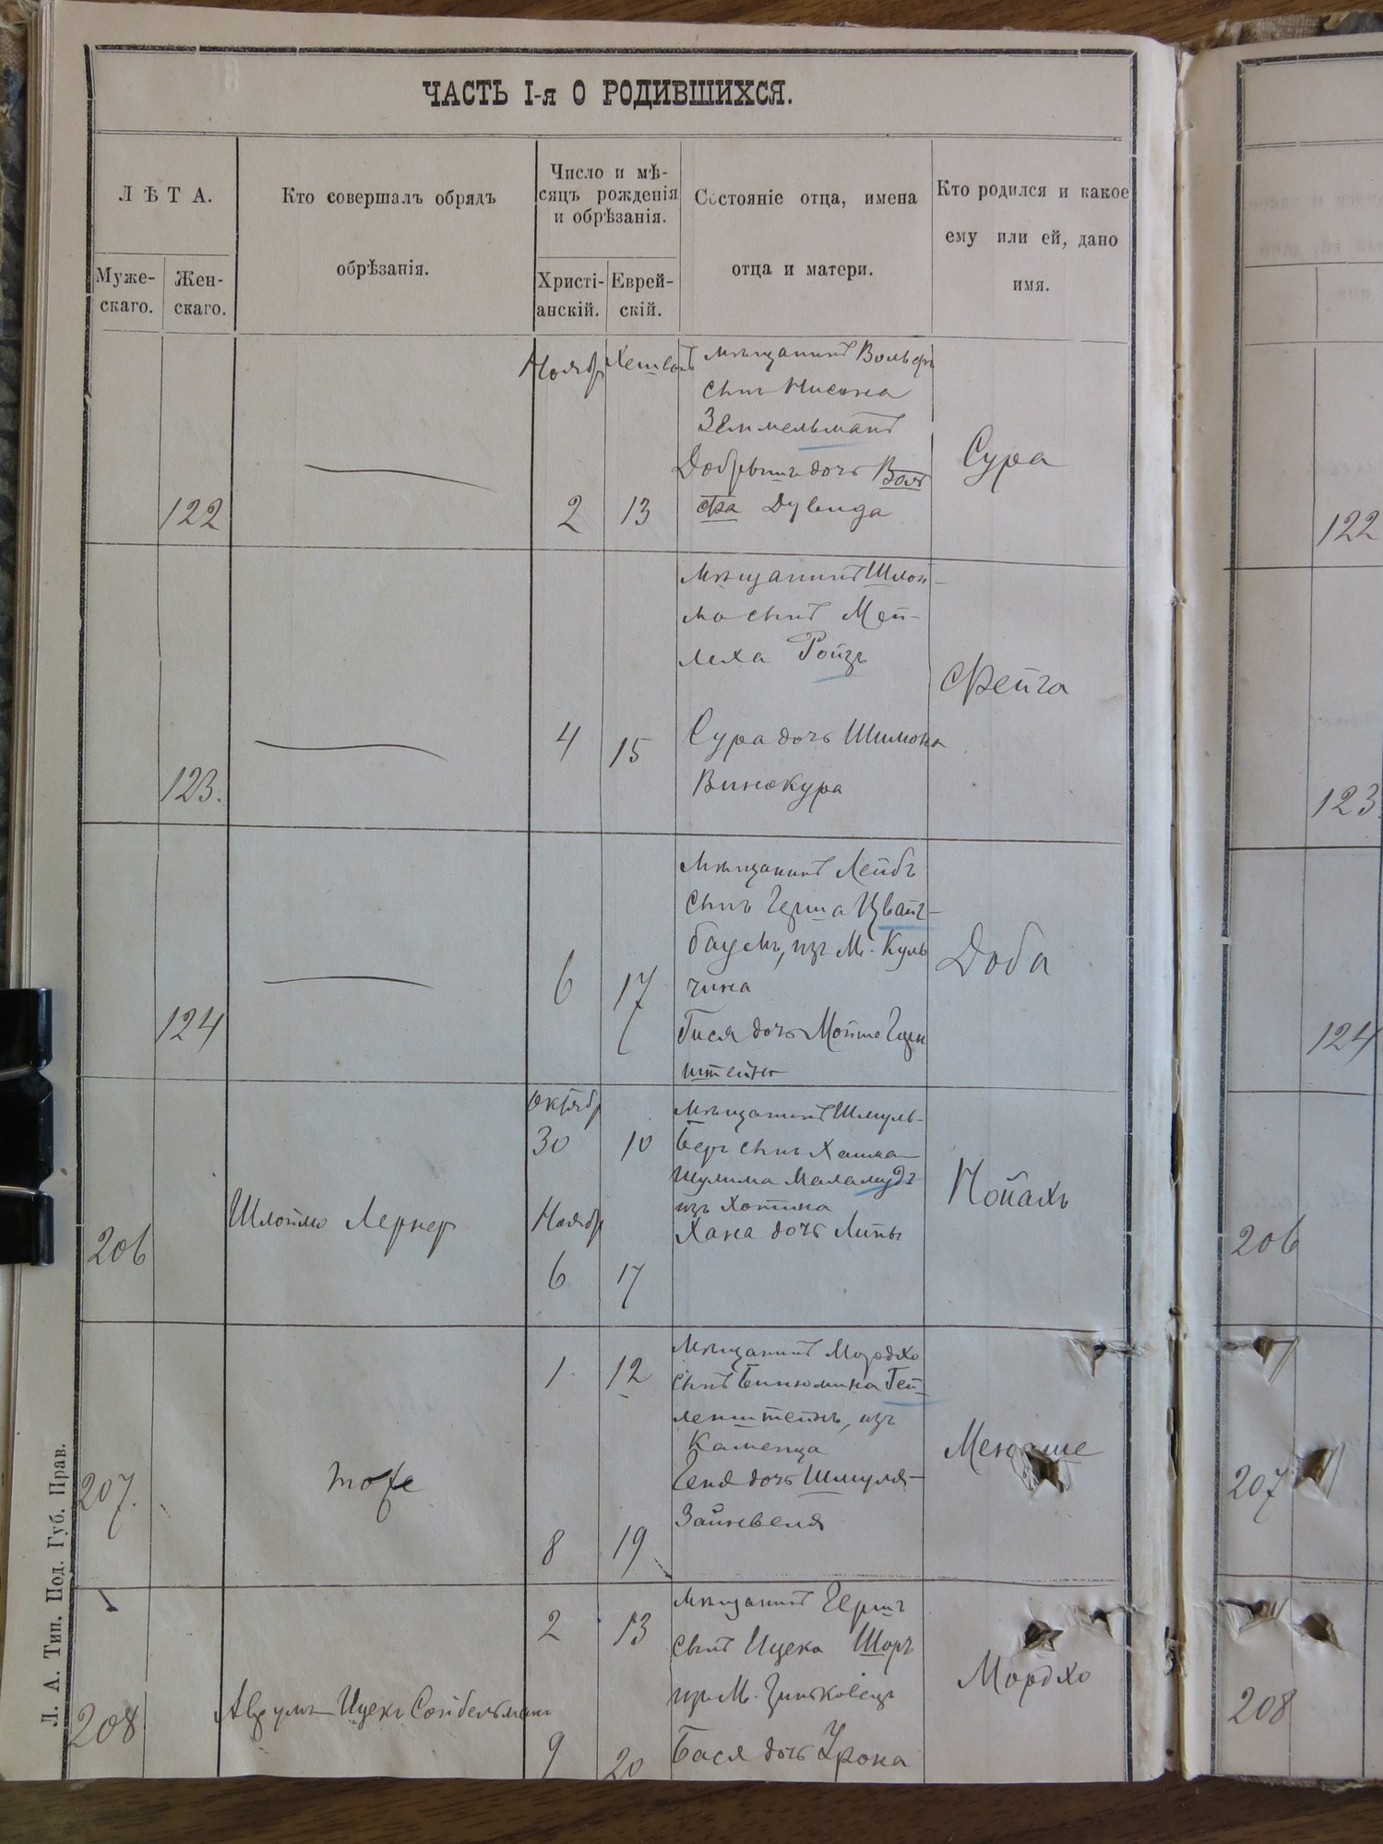 ЧАСТЬ I-я О РОДИВШИХСЯ.
ЛѢТА.
Муже-
скаго.
Жен-
скаго.
Кто совершалъ обрядъ
обрѣзанія.
Число и мѣ-
сяцъ рожденія
и обрѣзанія.
Христі-
анскій.
Еврей-
скій.
Состояніе отца, имена
отца и матери.
Кто родился и какое
ему или ей, дано
имя.
122
Ноябр
2
Хешванъ
13
мѣщанинъ Вольфъ
сынъ Нисона
Зелмельманъ
дочь Воль
фа Дувида
Сура
122
123.
4
15
Мѣщанинъ Шлой-
ма сынъ Мей-
леха Ройзъ
Сура дочь Шимона
Винокура
Фейга
123
124
6
17
Мѣщанинъ Лейбъ
сынъ Герша Цвайг-
баумъ, изъ М. Куль
чина
Гися дочь Мойше Герн
штейнъ
Доба
124
206
Шлоймо Лернер
Октябр
30
10
Ноябр
6
17
Мѣщанинъ Шмуль-
Беръ сынъ Хаима-
Шулима Маламудъ
изъ Хотина
Хана дочь Липы
Пойахъ
206
207.
тоже
1
12
8
19
Мѣщанинъ Мордхо
сынъ Биньюмина Гел-
ленштейнъ, изъ
Каменца
Геня дочь Шмуля-
Зайнвеля
Менаше
207
208
Аврумъ-Ицекъ Сойбельманъ
2
13
9
20
Мѣщанинъ Гершъ
сынъ Ицека Шоръ
из М. Гиньковецъ
Бася дочь Урона
Мордхо
208
Л. А. Тип. Под. Губ. Прав.